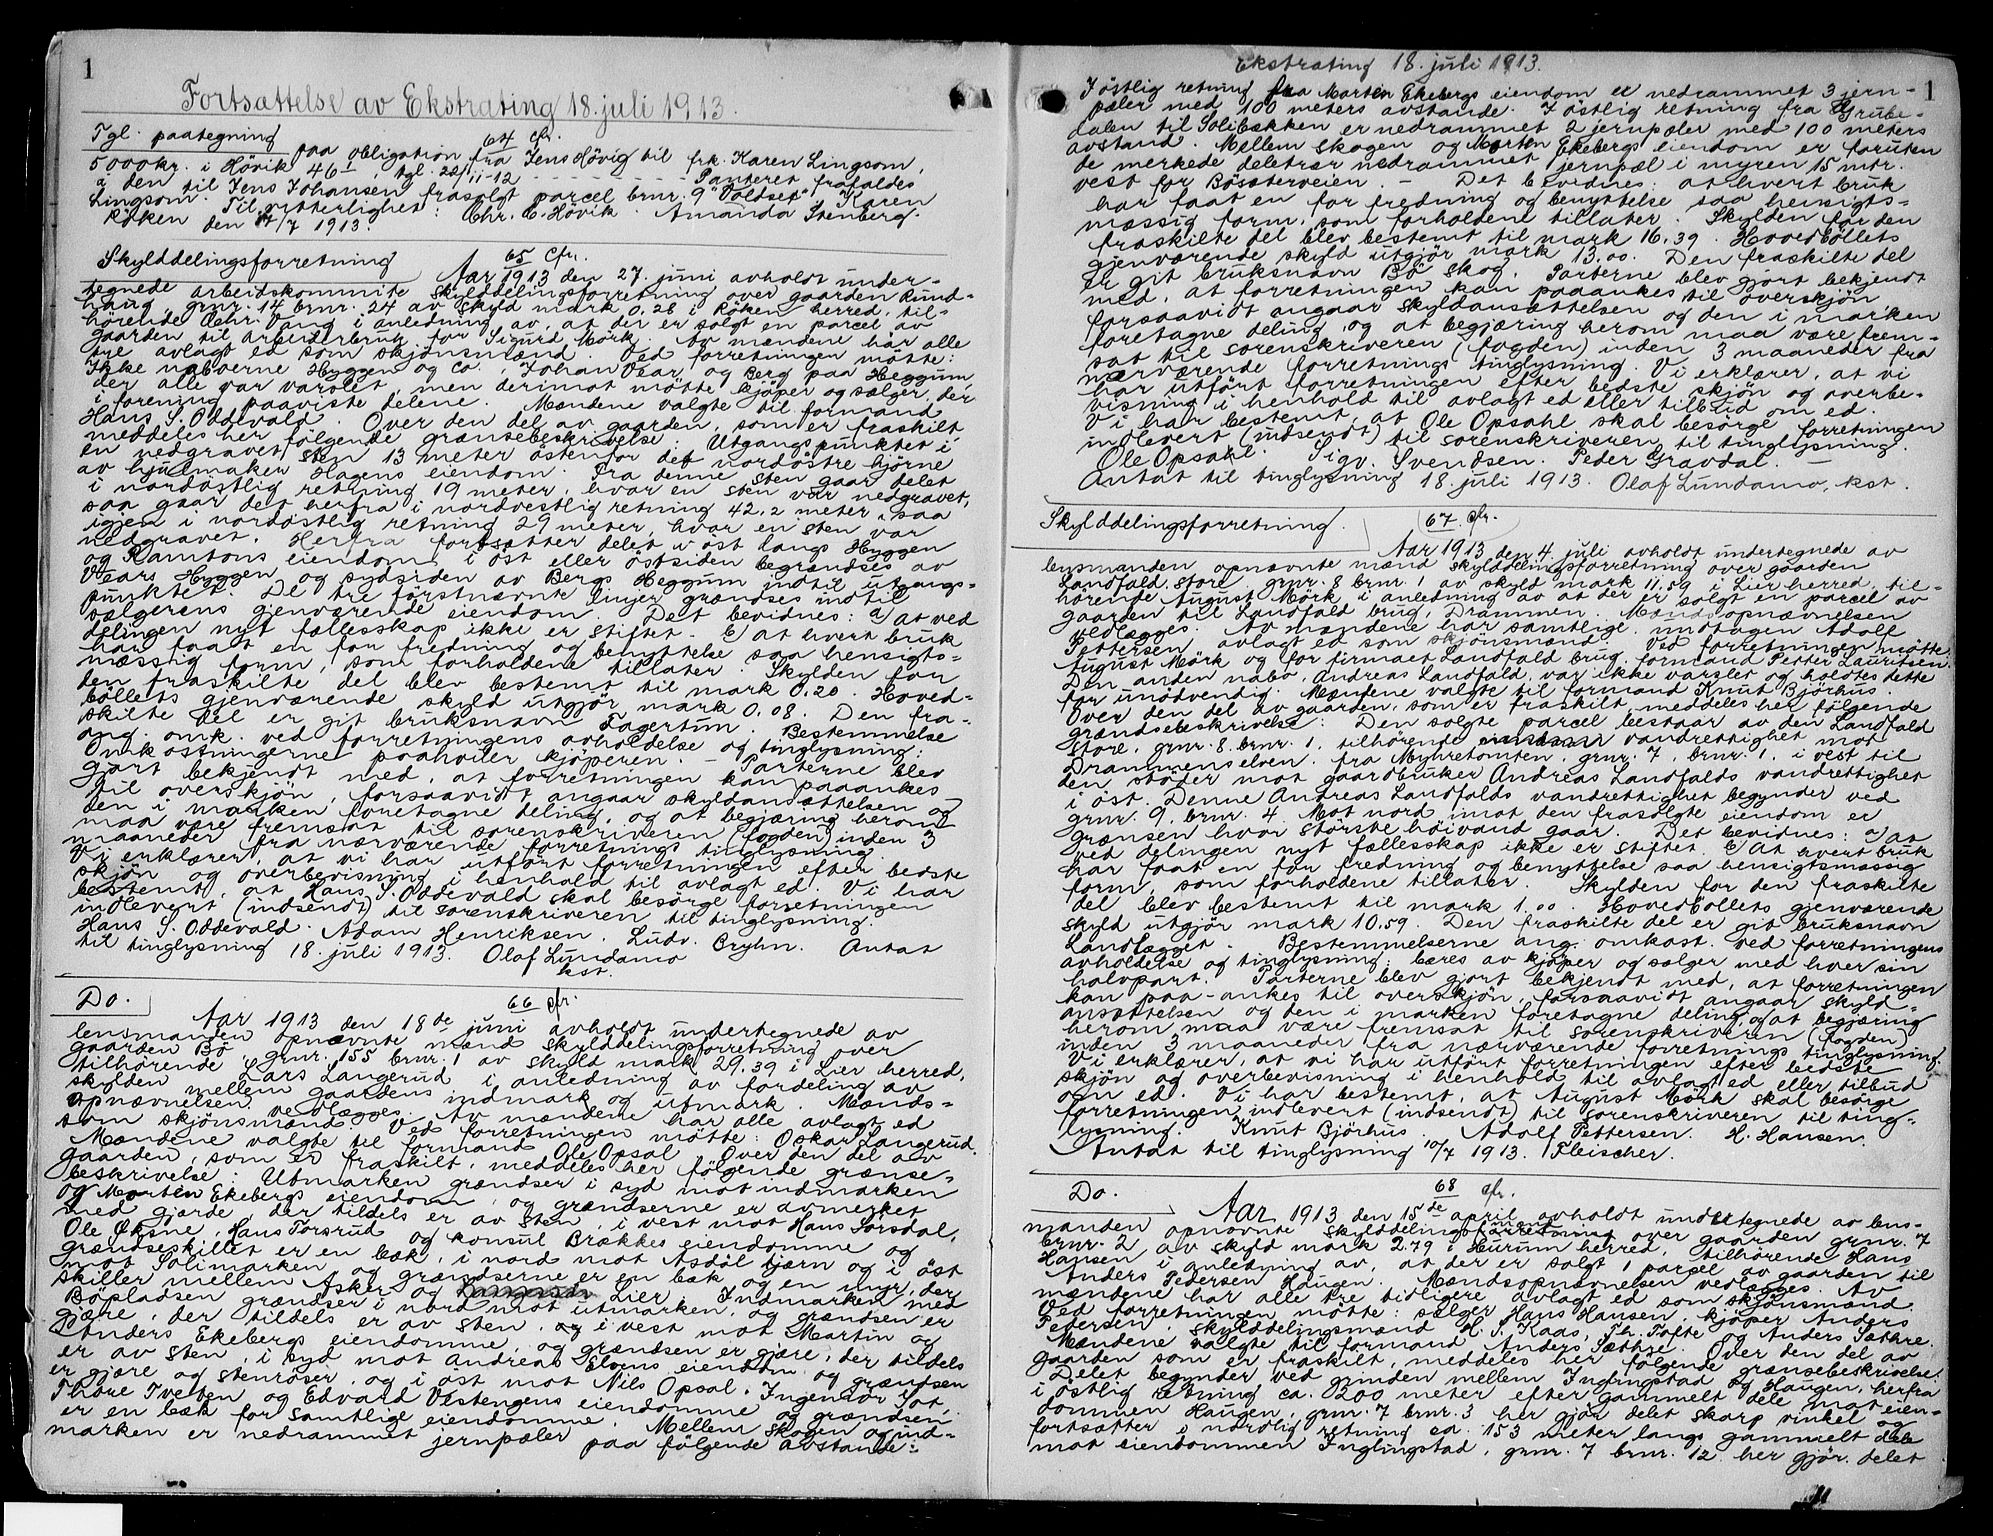 1
Fortsættelse av Ekstrating 18. juli 1913.
Tgl. paategning 64 cfr.
paa obligation fra Jens Hövig til frk. Karen Lingsom,
5000 kr. i Hövik 46, tgl. 22/11-12 - - - - - - - Panteret frafaldes
a den til Jens Johansen frasolgt parcel brnr. 9 "Voldset". Karen
Lingsom. Til vitterlighet: Chr. C. Hövik. Amanda Stenberg.
Röken den 17/7 1913.
Skylddelingsforretning 65 cfr.
Aar 1913 den 27. juni avholdt under-
tegnede arbeidskommite skylddelingsforretning over gaarden Rund-
haug, grnr. 14 brnr. 24 av skyld mark 0.28 i Röken herred, til-
hörende Achr. Vang i anledning av, at der er solgt en parcel av
gaarden til arbeiderbruk for Sigurd Mörk. Av mændene har alle
tre avlagt ed som skjönsmænd. Ved forretningen mötte:
Ikke naboerne Hyggen og Co., Johan Vear, og Berg paa Heggum,
der alle var varslet, men derimot mötte kjöper og sælger, der
i forening paaviste delene. Mændene valgte til formand
Hans S. Oddevald. Over den del av gaarden, som er fraskilt,
meddeles her fölgende grænsebeskrivelse: Utgangspunktet i
en nedgravet sten 13 meter östenfor det nordöstre hjörne
av hjulmaker Hagens eiendom. Fra denne sten gaar delet
i nordöstlig retning 19 meter, hvor en sten var nedgravet,
saa gaar det herfra i nordvestlig retning 42.2 meter, saa
igjen i nordöstlig retning 29 meter, hvor en sten var
nedgravet. Herfra fortsætter delet i öst langs Hyggen
og Ramtons eiendom, i öst eller östsiden begrændses av
Vears Hyggen og sydsiden av Bergs Heggum indtil utgangs-
punktet. De tre förstnævnte linjer grændses indtil
sælgerens gjenværende eiendom. Det bevidnes: a) at ved
delingen nyt fællesskap ikke er stiftet. b) at hvert bruk
har faat en for fredning og benyttelse saa hensigts-
mæssig form, som forholdene tillater. Skylden for
den fraskilte del blev bestemt til mark 0.20. Hoved-
böllets gjenværende skyld utgjör mark 0.08. Den fra-
skilte del er git bruksnavn Fagertun. Bestemmelse
ang. omk. ved forretningens avholdelse og tinglysning:
Omkostningerne paahviler kjöperen. - Parterne blev
gjort bekjendt med, at forretningen kan paaankes
til overskjön, forsaavidt angaar skyldansættelsen og
den i marken foretagne deling, og at begjæring herom
maa være fremsat til sorenskriveren (fogden) inden 3
maaneder fra nærværende forretnings tinglysning.
Vi erklærer, at vi har utfört forretningen efter bedste
skjön og overbevisning i henhold til avlagt ed. Vi har
bestemt, at Hans S. Oddevald skal besörge forretningen
indlevert (indsendt) til sorenskriveren til tinglysning.
Hans S. Oddevald. Adam Henriksen. Ludv. Bryhn. Antat
til tinglysning 18. juli 1913. Olaf Lundamo
kst.
Do. 66 cfr.
Aar 1913 den 18de juni avholdt undertegnede av
lensmanden opnævnte mænd skylddelingsforretning over
gaarden Bö, grnr. 155 brnr. 1 av skyld mark 29.39 i Lier herred,
tilhörende Lars Langerud i anledning av fordeling av
skylden mellem gaardens indmark og utmark. Mænds-
opnævnelsen vedlægges. Av mændene har alle avlagt ed
som skjönsmænd. Ved forretningen mötte: Oskar Langerud.
Mændene valgte til formand Ole Opsal. Over den del av
gaarden, som er fraskilt, meddeles her fölgende grænse-
beskrivelse: Utmarken grændser i syd mot indmarken
og Morten Ekebergs eiendom, og grændserne er avmerket
med gjærde, der tildels er av sten, i vest mot Hans Sorsdal,
Ole Øksne, Hans Torsrud og konsul Brækkes eiendomme og
grændseskillet er en bæk, i nord mot Asdöl tjærn og i öst
mot Solimarken og grændserne er en bæk og en myr, der
skiller mellem Asker og Lier. Indmarken med
Böpladsen grændser i nord mot utmarken, og grændsen er
gjære, der tildels er av sten, og i vest mot Martin og
Anders Ekebergs eiendomme, og grændsen er gjære, der tildels
er av sten, i syd mot Andreas Elvens eiendom og grændsen
er gjære og stenröser, og i öst mot Nils Opsal, Ingeniör Sot,
Thore Tveten og Edvard Vestengens eiendomme og grændsen
er en bæk for samtlige eiendomme. Mellem skogen og ind-
marken er nedrammet jernpæler paa fölgende avstande:
Ekstrating 18. juli 1913.
1
I östlig retning fra Morten Ekebergs eiendom er nedrammet 3 jern-
pæler med 100 meters avstande. I östlig retning fra Grube-
dalen til Solibækken er nedrammet 2 jernpæler med 100 meters
avstand. Mellem skogen og Morten Ekebergs eiendom er foruten
de merkede deletrær nedrammet jernpæl i myren 15 mtr.
vest for Bösæterveien. - Det bevidnes: at hvert bruk
har faat en for fredning og benyttelse saa hensigts-
mæssig form, som forholdene tillater. Skylden for den
fraskilte del blev bestemt til mark 16.39. Hovedböllets
gjenværende skyld utgjör mark 13.00. Den fraskilte del
er git bruksnavn Bö skog. Parterne blev gjort bekjendt
med, at forretningen kan paaankes til overskjön
forsaavidt angaar skyldansættelsen og den i marken
foretagne deling, og at begjæring herom maa være frem-
sat til sorenskriveren (fogden) inden 3 maaneder fra
nærværende forretnings tinglysning. Vi erklærer, at vi
har utfört forretningen efter bedste skjön og overbe-
visning i henhold til avlagt ed eller tilbud om ed.
Vi har bestemt, at Ole Opsahl skal besörge forretningen
indlevert (indsendt) til sorenskriveren til tinglysning.
Ole Opsahl. Sigv. Svendsen. Peder Gravdal. -
Antat til tinglysning 18. juli 1913. Olaf Lundamo, kst.
Skylddelingsforretning. 67 cfr.
Aar 1913 den 4. juli avholdt undertegnede av
lensmanden opnævnte mænd skylddelingsforretning over gaarden
Landfald store, grnr. 8 brnr. 1 av skyld mark 11.59 i Lier herred, til-
hörende August Mörk i anledning av at der er solgt en parcel av
gaarden til Landfald brug, Drammen. Mændsopnævnelsen
vedlægges. Av mændene har samtlige, undtagen Adolf
Pettersen avlagt ed som skjönsmænd. Ved forretningen mötte
August Mörk og for firmaet Landfald brug, formand Petter Lauritsen.
Den anden nabo, Andreas Landfald, var ikke varslet og holdtes dette
for unödvendig. Mændene valgte til formand Knut Björhus.
Over den del av gaarden, som er fraskilt, meddeles her fölgende
grændsebeskrivelse: Den solgte parcel bestaar av den Landfald
store, grnr. 8 brnr. 1, tilhörende vandrettighet mot
Drammenselven, fra Myhretomten, grnr. 7, brnr. 1, i vest til
den stöder mot gaardbruker Andreas Landfalds vandrettighet
i öst. Denne Andreas Landfalds vandrettighet begynder ved
grnr. 9, brnr. 4. Mot nord imot den frasolgte eiendom er
grænsen hvor störste höivand gaar. Det bevidnes: a) at
ved delingen nyt fællesskap ikke er stiftet. b) At hvert bruk
har faat en for fredning og benyttelse saa hensigtsmæssig
form, som forholdene tillater. Skylden for den fraskilte
del blev bestemt til mark 1.00. Hovedböllets gjenværende
skyld utgjör mark 10.59. Den fraskilte del er git bruksnavn
Landlægget. Bestemmelserne ang. omkost. ved forretningens
avholdelse og tinglysning: bæres av kjöper og sælger med hver sin
halvpart. Parterne blev gjort bekjendt med, at forretningen
kan paa-ankes til overskjön, forsaavidt angaar skyld-
ansættelsen og den i marken foretagne deling, og at begjæring
herom maa være fremsat til sorenskriveren (fogden)
inden 3 maaneder fra nærværende forretnings tinglysning.
Vi erklærer, at vi har utfört forretningen efter bedste
skjön og overbevisning i henhold til avlagt ed eller tilbud
om ed. Vi har bestemt, at August Mörk skal besörge
forretningen indlevert (indsendt) til sorenskriveren til ting-
lysning. Knut Björhus. Adolf Pettersen. H. Hansen.
Antat til tinglysning 10/7 1913. Fleischer.
Do. 68 cfr.
Aar 1913 den 15de april avholdt undertegnede av lens-
manden opnævnte mænd skylddelingsforretning over gaarden grnr. 7
brnr. 2 av skyld mark 2.79 i Hurum herred, tilhörende Hans
Hansen i anledning av, at der er solgt 1 parcel av gaarden til
Anders Pedersen Haugen. Mændsopnævnelsen vedlægges. Av
mændene har alle tre tidligere avlagt ed som skjönsmænd.
Ved forretningen mötte: sælger Hans Hansen, kjöper Anders
Pedersen, skylddelingsmænd H. S. Kaas, Th. Tofte og Anders Sæthre.
Mændene valgte til formand Anders Sæthre. Over den del av
gaarden som er fraskilt, meddeles her fölgende grænsebeskrivelse:
Delet begynder ved grinden mellem Inglingstad og Haugen, herfra
i östlig retning ca. 200 meter efter gammelt dele mot eien-
dommen Haugen, grnr. 7 brnr. 3 her gjör delet skarp vinkel og
fortsætter i nordlig retning ca. 153 meter langs gammelt dele
mot eiendommen Inglingstad, grnr. 7 brnr. 12 her gjör delet